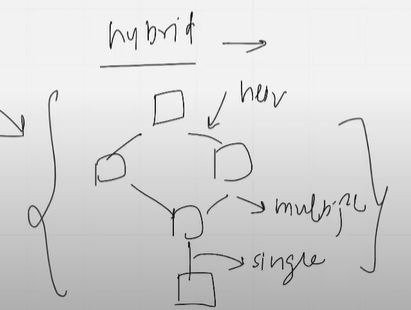 hybrid
heir
multiple
single